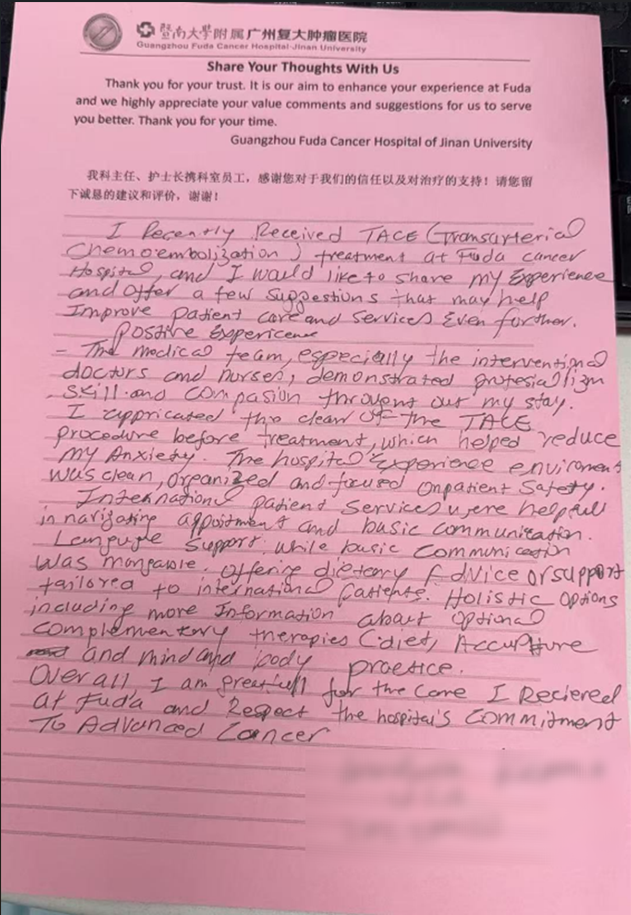 暨南大學附属广州复大肿瘤医院
Guangzhou Fuda Cancer Hospital·Jinan University
Share Your Thoughts With Us
Thank you for your trust. It is our aim to enhance your experience at Fuda
and we highly appreciate your value comments and suggestions for us to serve
you better. Thank you for your time.
Guangzhou Fuda Cancer Hospital of Jinan University
我科主任、护士长携科室员工，感谢您对于我们的信任以及对治疗的支持！请您留
下诚恳的建议和评价，谢谢！
I Recently Received TACE (Transarterial
Chemoembolization) treatment at Fuda cancer
Hospital, and I would like to share my Experience
and offer a few suggestions that may help
Improve patient care and services Even further.
Positive Expericence
- The medical team, especially the interventional
doctors and nurses, demonstrated protesialism
skill and Compasion throught out my stay.
I appricated the clear of the TACE
procedure before treatment, which helped reduce
my Anxiety. The hospital experience enviroment
was clean, organized and focused on patient Safety.
International patient Services were helpfull
in navigating appoitment and basic communication.
Language Support: while basic communication
was mangable. Offering dietary Advice or support
tailored to international patients. Holistic options
including more Information about optional
complementary therapies (diet, Accupture
and mind and body practice.
Overall I am greatfull for the care I Recieved
at Fuda and Respect the hospital's Commitment
To Advanced Cancer